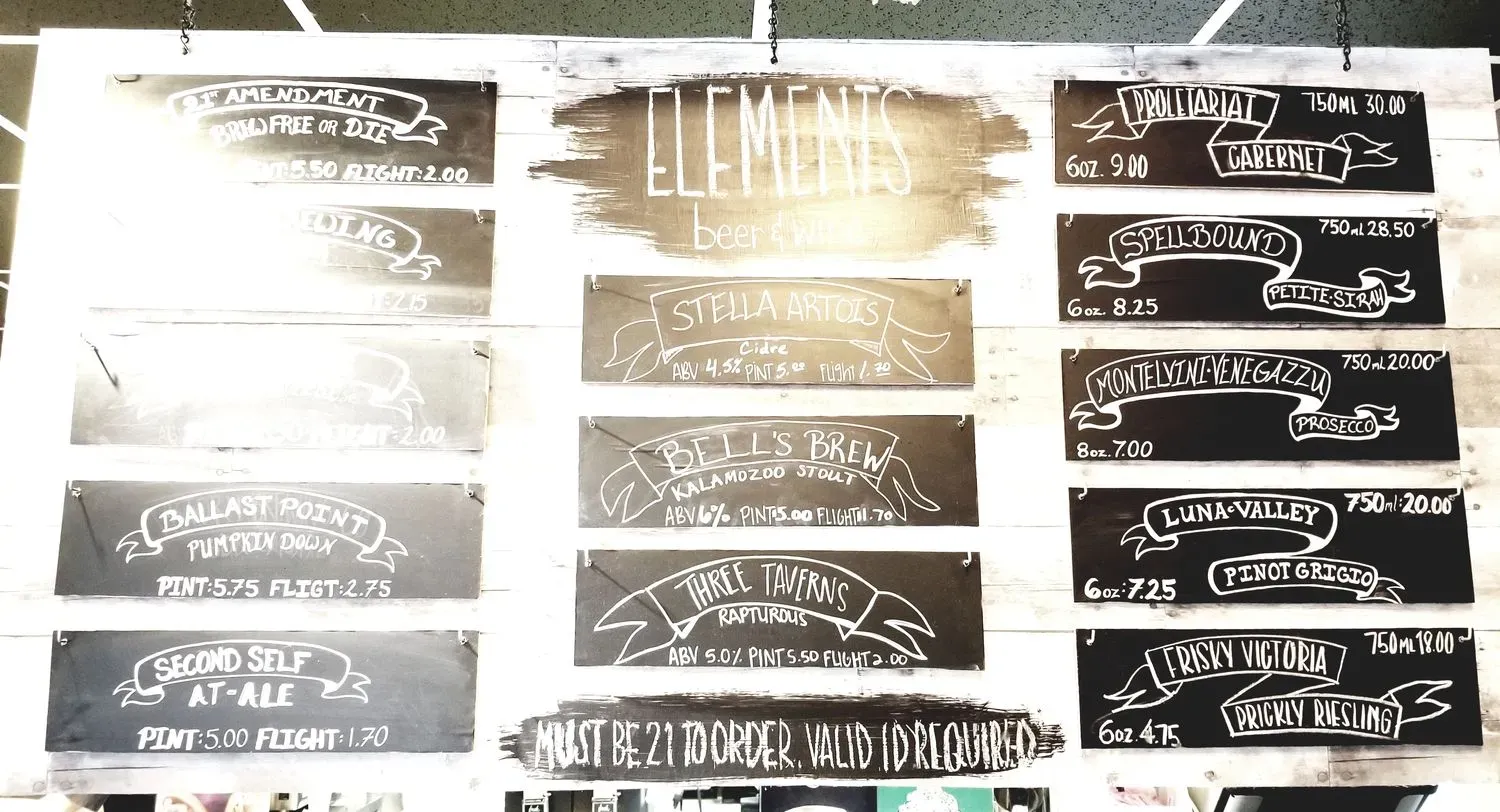 21st AMENDMENT
BREW FREE OR DIE
5.50 FLIGHT: 2.00
2.00
BALLAST POINT
PUMPKIN DOWN
PINT: 5.75 FLIGT: 2.75
SECOND SELF
AT-ALE
PINT: 5.00 FLIGHT: 1.70
ELEMENTS
beer & wine
STELLA ARTOIS
Cidre
ABV 4.5% PINT 5.00 Flight 1.70
BELL'S BREW
KALAMOZOO STOUT
ABV 6% PINT 5.00 FLIGHT 1.70
THREE TAVERNS
RAPTUROUS
ABV 5.0% PINT 5.50 FLIGHT 2.00
MUST BE 21 TO ORDER. VALID ID REQUIRED
PROLETARIAT 750ML 30.00
6oz. 9.00 CABERNET
SPELLBOUND 750mL 28.50
6oz. 8.25 PETITE·SIRAH
MONTELVINI·VENEGAZZU 750mL 20.00
PROSECCO
8oz. 7.00
LUNA·VALLEY 750ml: 20.00
6oz: 7.25 PINOT GRIGIO
FRISKY VICTORIA 750ML 18.00
6oz. 4.75 PRICKLY RIESLING